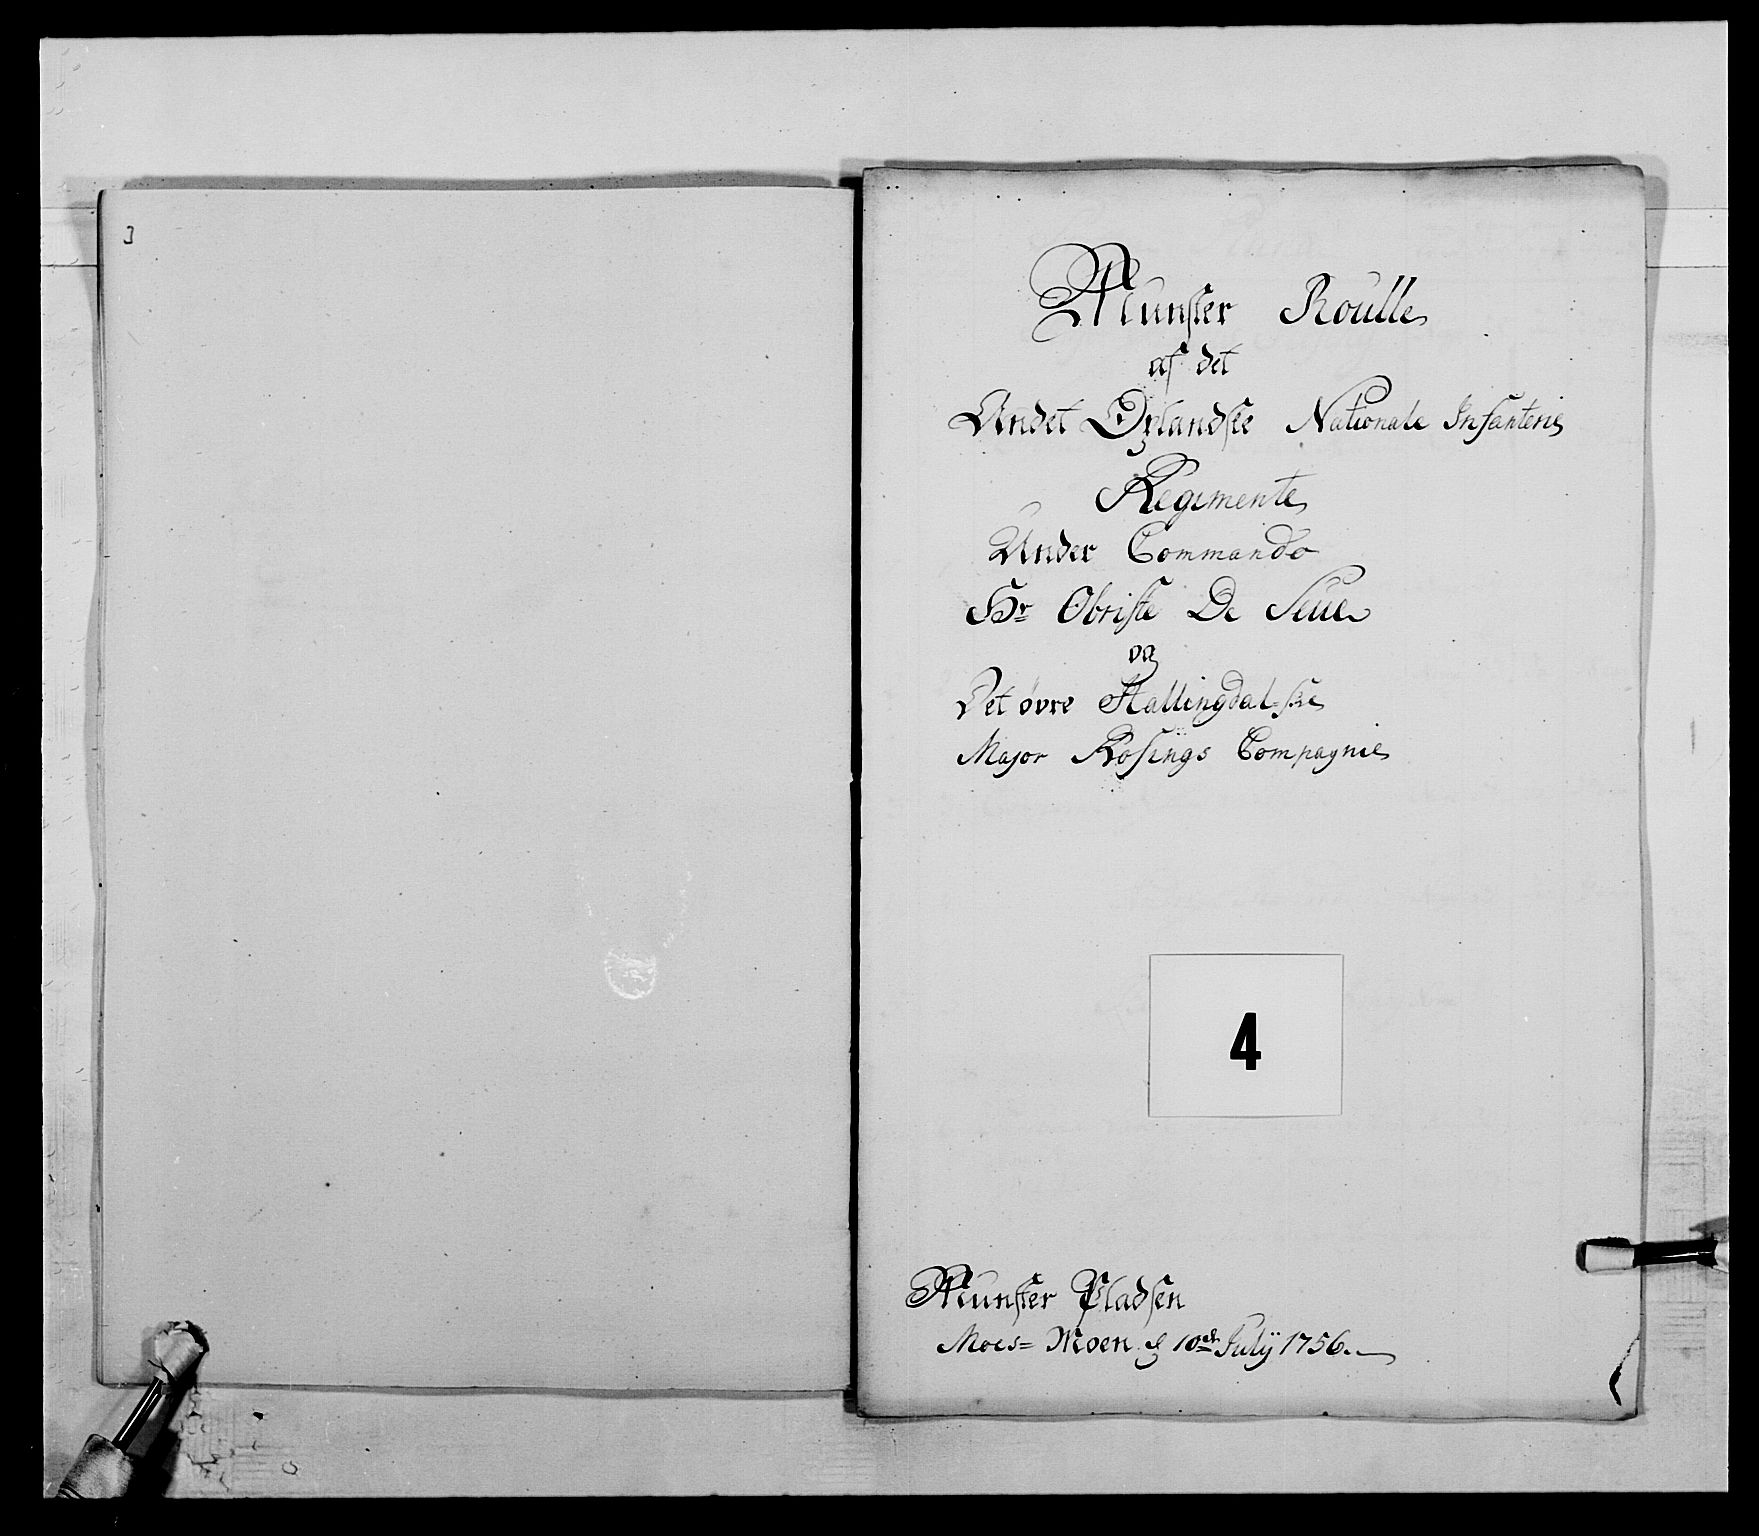 3
Munster Roulle
af det
Andet Oplandske Nationale Infanterie
Regimente
Under Commando
Hr Obriste De Seue
og
Det øvre Hallingdal-ske
Major Rosings Compagnie
4
Munster Pladsen
Moes= Moen d 10de Julÿ 1756.